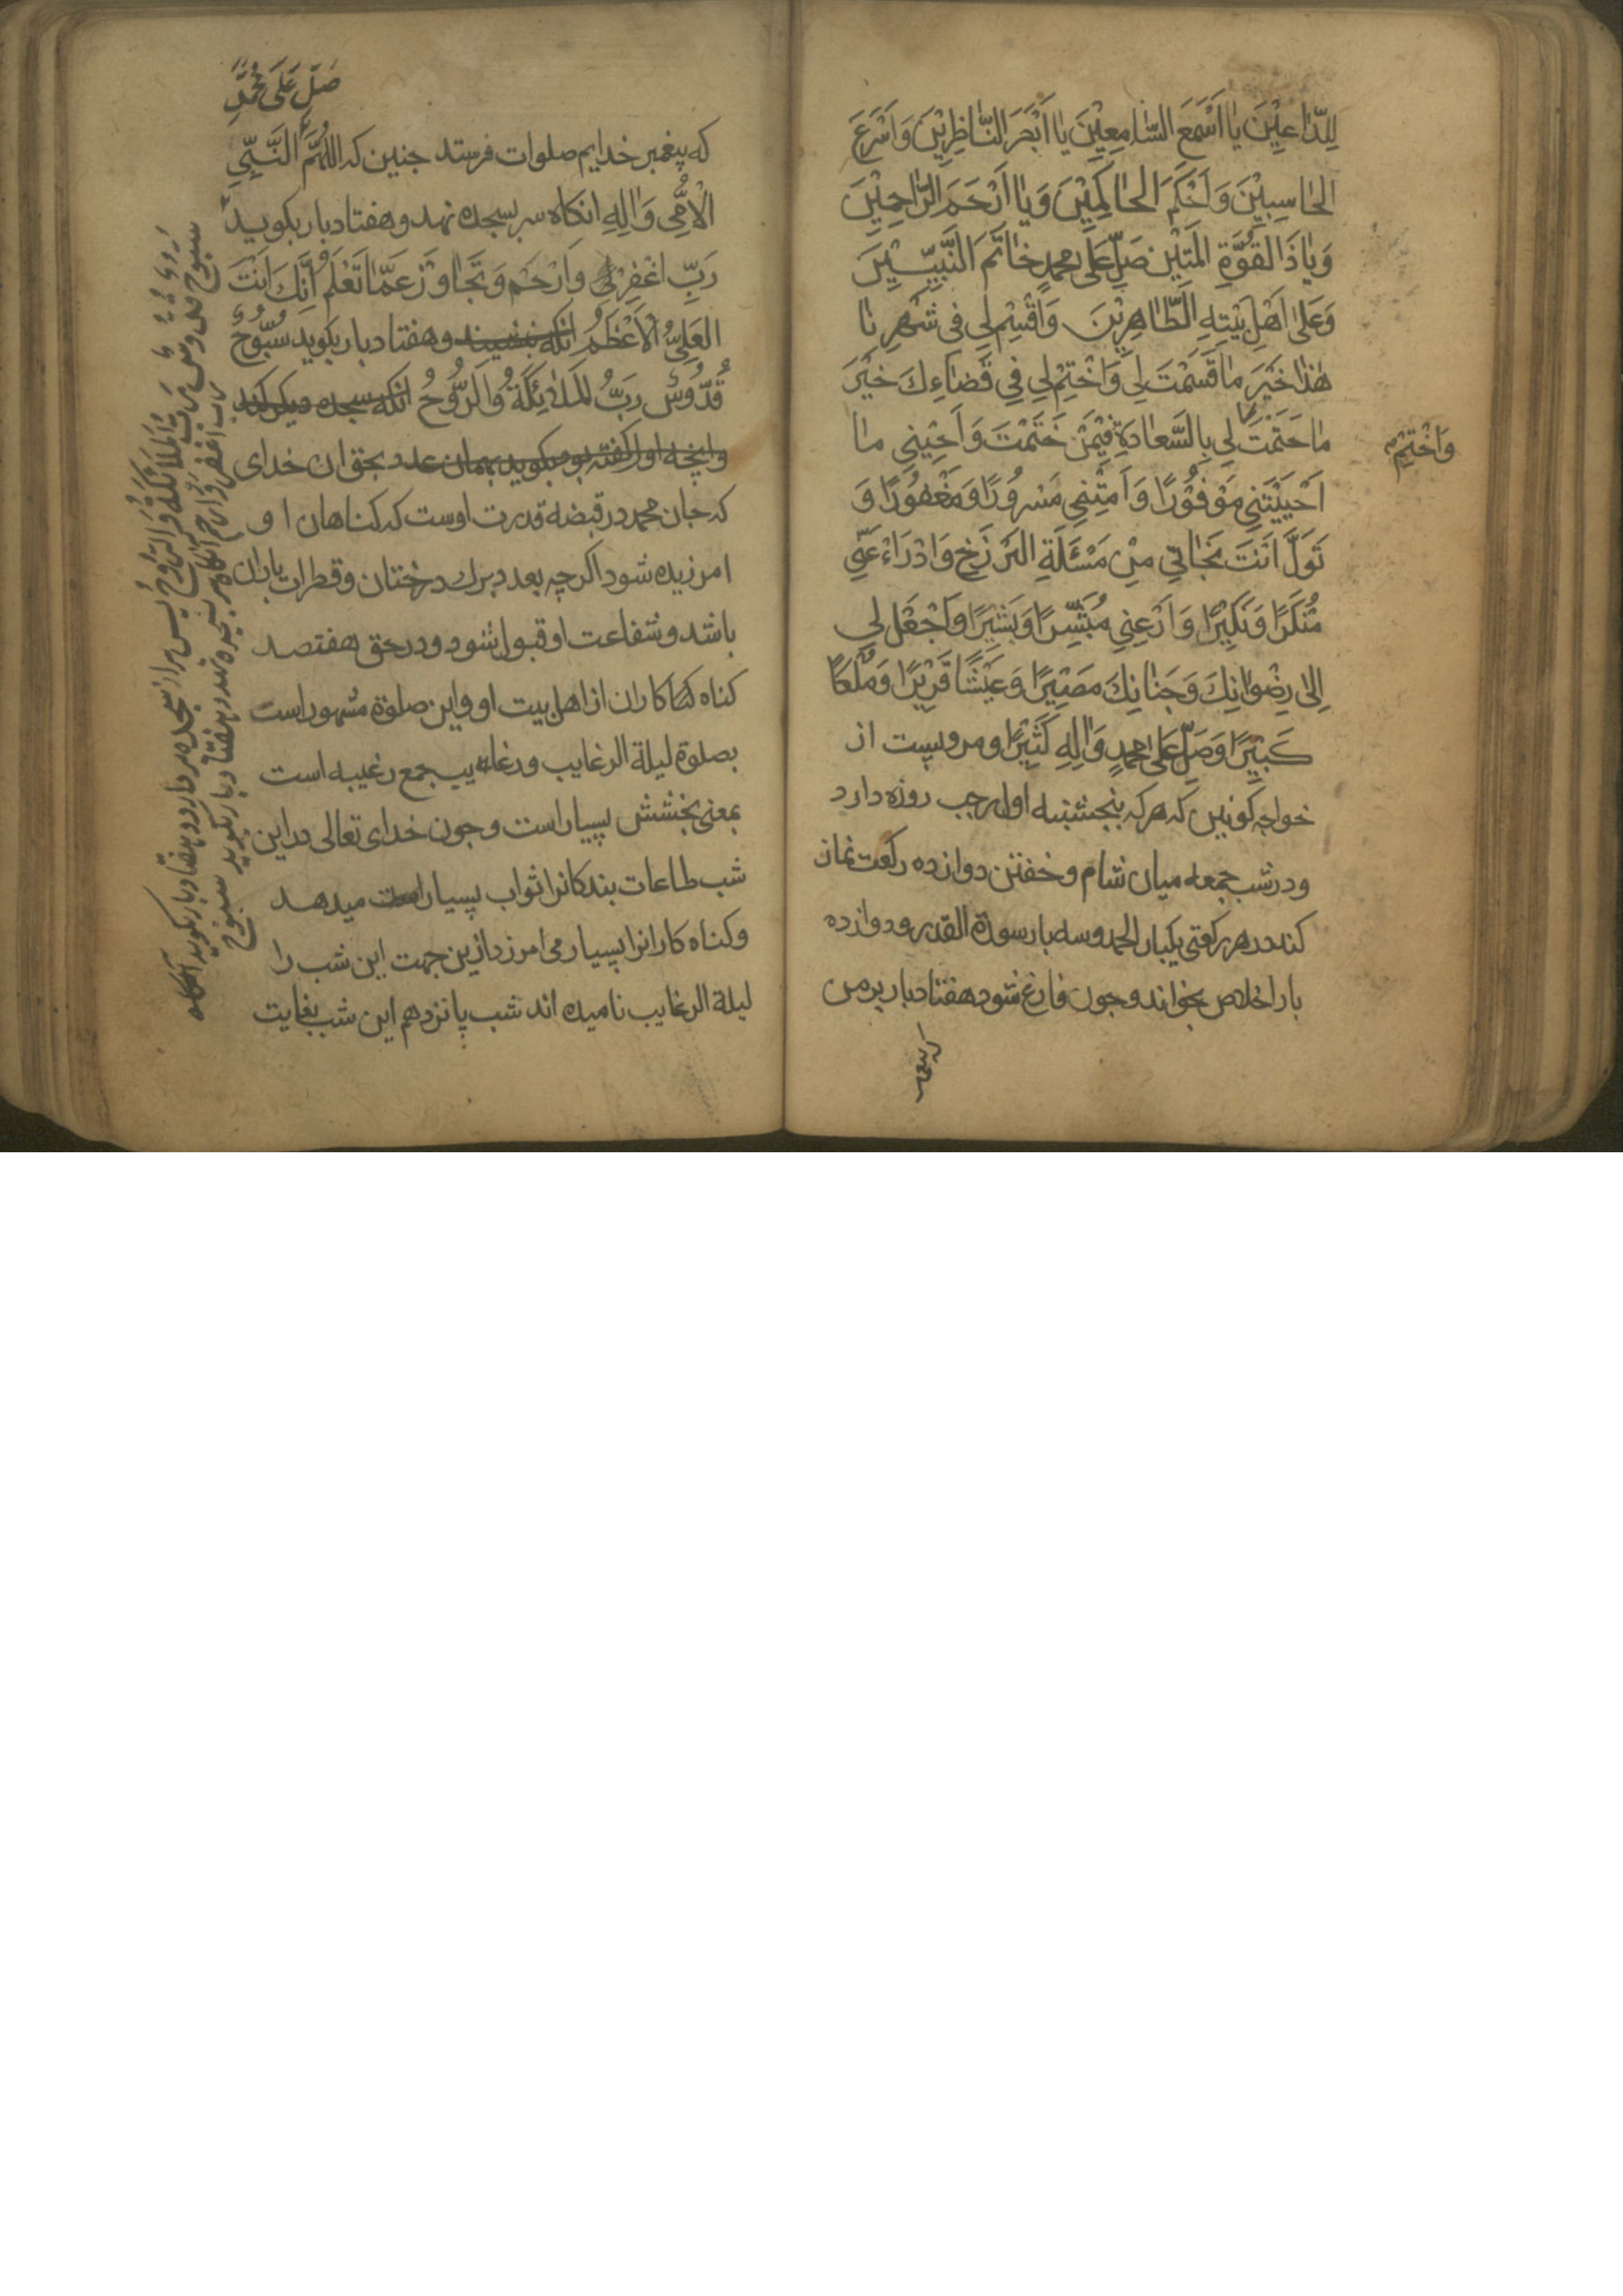 لِلدّاعِيْنَ يا اَسْمَعَ السّامِعِيْنَ يا اَبْصَرَ النّاظِرِيْنَ وَاَسْرَعَ
الحاسِبِيْنَ وَاَحْكَمَ الحاكِمِيْنَ وَيا اَرْحَمَ الرّاحِمِيْنَ
وَياذَ القُوَّةِ المَتِيْنِ صَلِّ عَلى محمدٍ خاتَمَ النَّبِيّيْنَ
وَعَلى اَهْلِ بَيْتِهِ الطّاهِرِيْنَ وَاقْسِمْ لِي فى شَهْرِنا
هٰذا خَيْرَ ما قَسَمْتَ لِي وَاخْتِمْ لِي فِي قَضاءِكَ خَيْرَ
ما حَتَمْتَ لِي بِالسَّعادَةِ فِيْمَنْ خَتَمْتَ وَاَحْيِنِي ما
وَاخْتِمْ
اَحْيَيْتَنِي مَوْفُوْرًا وَاَمِتْنِي مَسْرُورًا وَمَغْفُورًا وَ
تَوَلَّ اَنْتَ نَجَاتِي مِنْ مَسْئَلَةِ البَرْزَخِ وَادْرَاءْ عَنِّي
مُنْكَرًا وَنَكِيْرًا وَاَرْعِنِي مُبَشِّرًا وَبَشِيْرًا وَاجْعَلْ لِي
اِلىٰ رِضْوانِكَ وَجَنانِكَ مَصِيْرًا وَعَيْشًا قَرِيْرًا وَمُلْكًا
كَبِيْرًا وَصَلِّ عَلى محمدٍ وَالِهِ كَثِيْرًا و مرویست از
خواجه کونین که هرکه پنجشنبه اول رجب روزه دارد
و در شب جمعه میان شام و خفتن دوازده رکعت نماز
کند در هر رکعتی یکبار الحمد و سه بار سورة القدر و دوازده
بار اخلاص بخواند و جون فارغ شود هفتاد بار بر من
که پیغمبر
صَلِّ عَلَى مُحَمَّدٍ
که پیغمبر خدایم صلوات فرستد جنین که اللهُمَّ النَّبِيِّ
الْاُمِّى وَالِهِ انکاه سر بسجده نهد و هفتاد بار بکوید
رَبِّ اغْفِرْ لِي وَارْحَم وَتَجاوَزْ عَمّا تَعْلَم اِنَّكَ اَنْتَ
العَلِيُّ الْاَعْظَمُ انکه بنشیند و هفتاد بار بکوید سُبُّوحٌ
قُدُّوسٌ رَبُّ المَلائِكَةُ وَالرُّوحُ انکه سجده دیکر کند
وانچه اول کفته بود بکوید بهمان عدد بحق ان خدای
که جان محمد در قبضه قدرت اوست که کناهان او
امرزیده شود اکرچه بعدد برك درختان و قطرات باران
باشد و شفاعت او قبول شود و در حق هفتصد
کناه کاران از اهل بیت او و این صلوة مشهور است
بصلوة لیلة الرغایب و رغایب جمع رغیبه است
بمعنی بخشش بسیار است و جون خدای تعالی در این
شب طاعات بندکانرا ثواب بسیار میدهد
و کناه کارانرا بسیار می امرزد ازین جهت این شب را
لیلة الرغایب نامیده اند شب پانزدهم این شب بغایت
رب اغفر وارحم انکاه سر بسجده نهد و هفتاد بار بکوید سبوح
سبوح قدوس رب الملائكة والروح پس سر از سجده بردارد و هفتاد بار بکوید